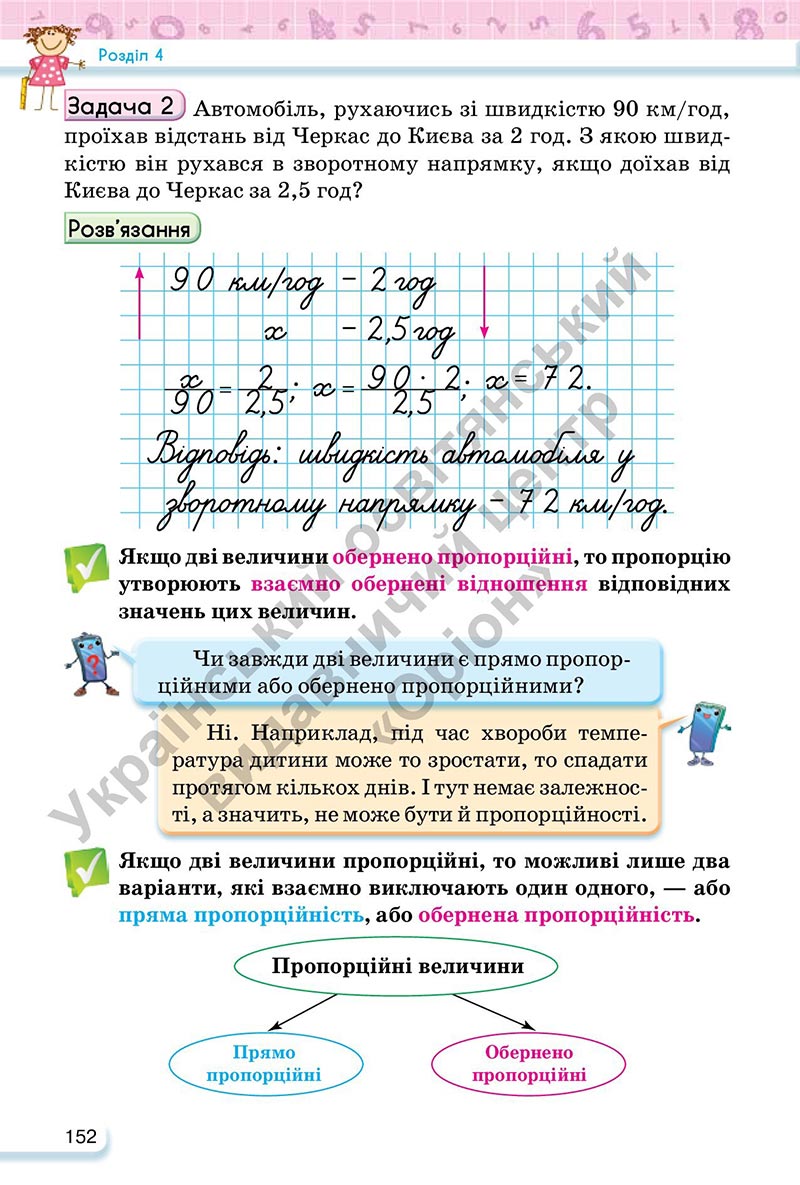 Розділ 4
Задача 2 Автомобіль, рухаючись зі швидкістю 90 км/год,
проїхав відстань від Черкас до Києва за 2 год. З якою швид-
кістю він рухався в зворотному напрямку, якщо доїхав від
Києва до Черкас за 2,5 год?
Розв’язання
90 км/год – 2 год
x – 2,5 год
x/90 = 2/2,5; x = 90 · 2/2,5; x = 72.
Відповідь: швидкість автомобіля у
зворотному напрямку – 72 км/год.
Якщо дві величини обернено пропорційні, то пропорцію
утворюють взаємно обернені відношення відповідних
значень цих величин.
?
Чи завжди дві величини є прямо пропор-
ційними або обернено пропорційними?
Ні. Наприклад, під час хвороби темпе-
ратура дитини може то зростати, то спадати
протягом кількох днів. І тут немає залежнос-
ті, а значить, не може бути й пропорційності.
Якщо дві величини пропорційні, то можливі лише два
варіанти, які взаємно виключають один одного, — або
пряма пропорційність, або обернена пропорційність.
Пропорційні величини
Прямо
пропорційні
Обернено
пропорційні
152
Український освітянський
видавничий центр
«Оріон»